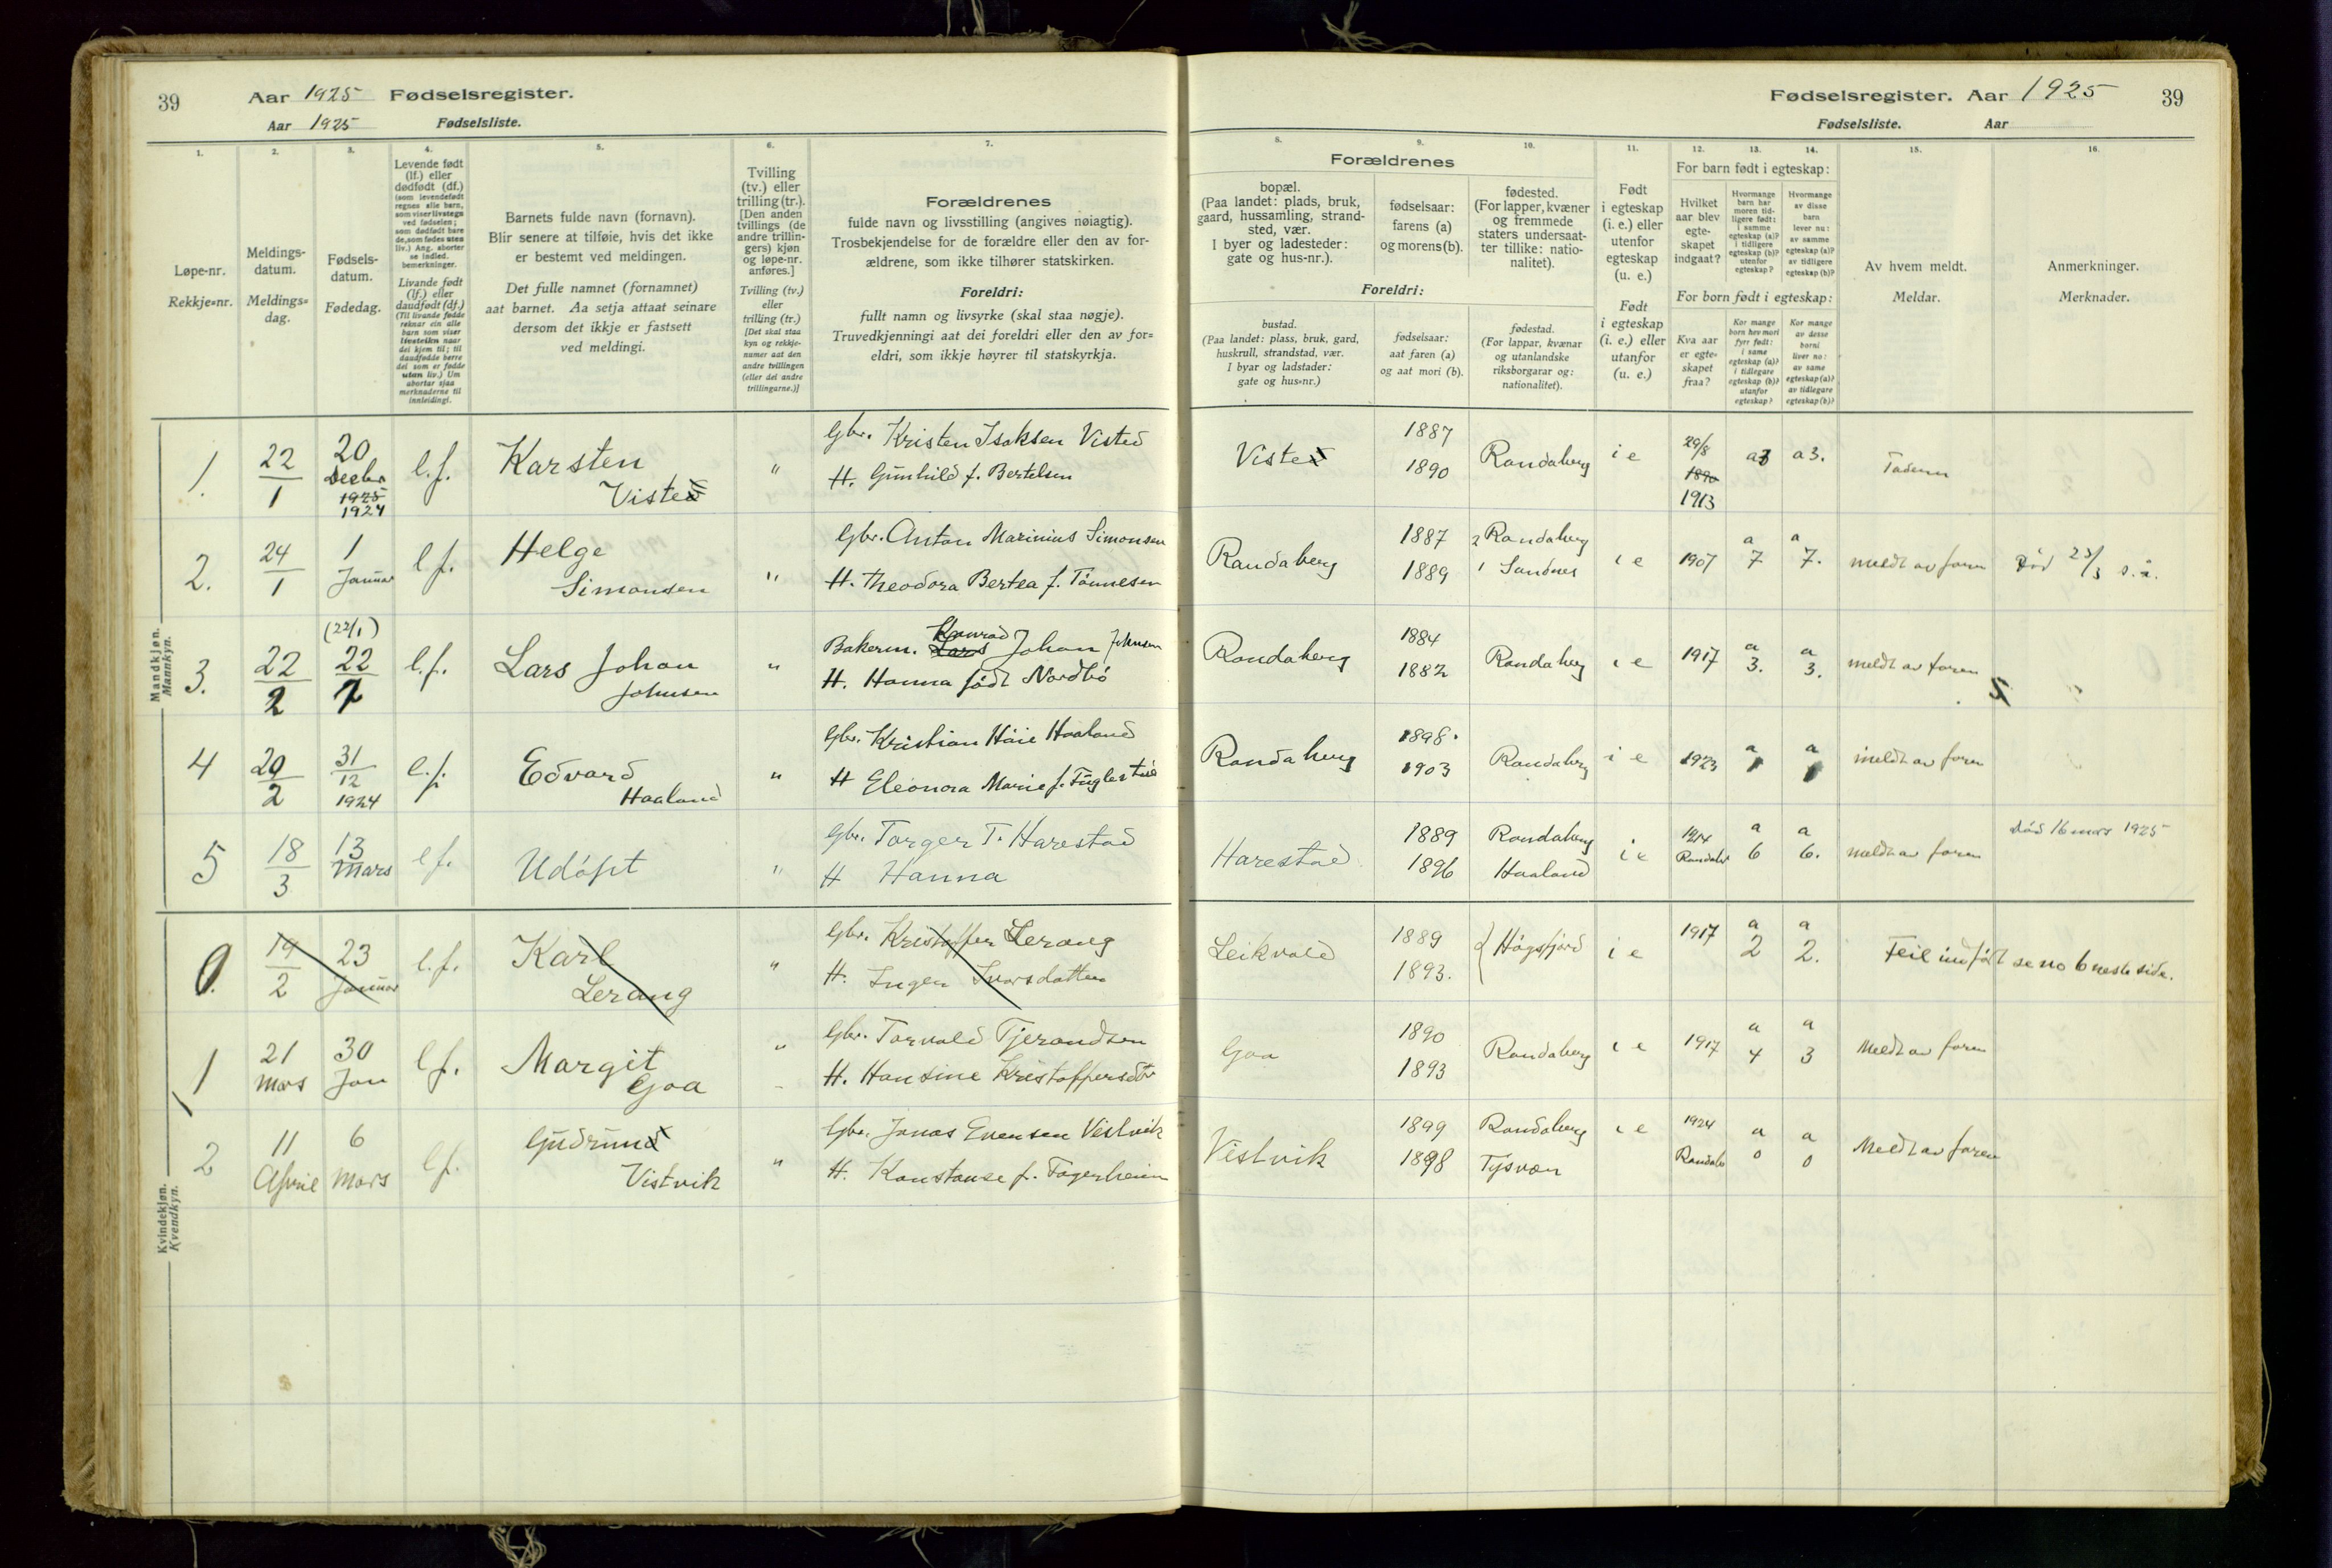 39 Aar 1925 Fødselsregister.
Aar 1925 Fødselsliste.
1. 2. 3. 4. 5. 6. 7.
Løpe-nr.
Rekkje=nr.
Meldings-
datum.
Meldings=
dag.
Fødsels-
datum.
Fødedag.
Levende født
(lf.) eller
dødfødt (df.)
(som levendefødt
regnes alle barn,
som viser livstegn
ved fødselen;
som dødfødt bare
de, som fødes uten
liv.) Ang. aborter
se indled.
bemerkninger.
Livande født
(lf.) eller
daudfødt (df.)
(Til livande fødde
reknar ein alle
barn som viser
livsteikn naar
dei kjem til; til
daudfødde berre
dei som er fødde
utan liv.) Um
abortar sjaa
merknaderne til
innleidingi.
Barnets fulde navn (fornavn).
Blir senere at tilføie, hvis det ikke
er bestemt ved meldingen.
Det fulle namnet (fornamnet)
aat barnet. Aa setja attaat seinare
dersom det ikkje er fastsett
ved meldingi.
Tvilling
(tv.) eller
trilling (tr.).
[Den anden
tvillings (de
andre trillin-
gers) kjøn
og løpe-nr.
anføres.]
Tvilling (tv.)
eller
trilling (tr.)
[Det skal staa
kyn og rekkje-
numer aat den
andre tvillingen
(eller dei andre
trillingarne.)]
Forældrenes
fulde navn og livsstilling (angives nøiagtig).
Trosbekjendelse for de forældre eller den av for-
ældrene, som ikke tilhører statskirken.
Foreldri:
fullt namn og livsyrke (skal staa nøgje).
Truvedkjenningi aat dei foreldri eller den av for=
eldri, som ikkje høyrer til statskyrkja.
Mandkjøn.
Mannkyn.
1. 22/1 20 Decbr 1925 1924 l.f. Karsten Visted " Gbr. Kristen Isaksen Visted
H. Gunhild f. Bertelsen
2. 24/1 1 Januar l.f. Helge Simonsen " Gbr. Anton Marinius Simonsen
H. Theodora Bertea f. Tønnesen
3. 22/2 (22/1) 22/1 l.f. Lars Johan Johnsen " Bakerm. Lars Konrad Johan Johnsen
H. Hanna født Nordbö
4 20/2 31/12 1924 l.f. Edvard Haaland " Gbr. Kristian Håie Haaland
H Eleonora Marie f. Fuglestad
5 18/3 13 Mars l.f. Udöpt " Gbr. Torger T. Harestad
H Hanna
Kvindekjøn.
Kvendkyn.
0. 19/2 23 Januar l.f. Karl Lerang " Gbr. Kristoffer Lerang
H. Inger Ivarsdatter
1 21 Mars 30 Jan l.f. Margit Goa " Gbr. Torvald Tjerandsen
H. Hansine Kristoffersdtr
2 11 April 6 Mars l.f. Gudrund Vistvik " Gbr. Jonas Evensen Vistvik
H. Konstanse f. Fagerheim
Fødselsregister. Aar 1925 39
Fødselsliste. Aar
8. 9. 10. 11. 12. 13. 14. 15. 16.
Forældrenes
bopæl.
(Paa landet: plads, bruk,
gaard, hussamling, strand-
sted, vær.
I byer og ladesteder:
gate og hus-nr.).
fødselsaar:
farens (a)
og morens (b).
fødested.
(For lapper, kvæner
og fremmede
staters undersaat-
ter tillike: natio-
nalitet).
Foreldri:
bustad.
(Paa landet: plass, bruk, gard,
huskrull, strandstad, vær.
I byar og ladstader:
gate og hus=nr.)
fødselsaar:
aat faren (a)
og aat mori (b).
fødestad.
(For lappar, kvænar
og utanlandske
riksborgarar og:
nationalitet).
Født
i egteskap
(i. e.) eller
utenfor
egteskap
(u. e.)
Født
i egteskap
(i. e.) eller
utanfor
(u. e.)
For barn født i egteskap:
Hvilket
aar blev
egte-
skapet
indgaat?
Hvormange
barn har
moren tid-
ligere født:
i samme
egteskap (a)?
i tidligere
egteskap (b)?
utenfor
egteskap?
Hvormange
av disse
barn
lever nu:
av samme
egteskap (a)?
av tidligere
egteskap (b)?
For born født i egteskap:
Kva aar
er egte-
skapet
fraa?
Kor mange
born hev mori
fyrr født:
i same
egteskap (a)?
i tidlegare
egteskap (b)?
utanfor
egteskap?
Kor mange
av desse
borni
liver no:
av same
egteskap (a)?
av tidlegare
egteskap (b)?
Av hvem meldt.
Meldar.
Anmerkninger.
Merknader.
Visted 1887 1890 Randaberg i e 29/8 1890 1913 a3 a3. Faderen
Randaberg 1887 1889 2 Randaberg 1 Sandnes i e 1907 a 7 a 7. meldt av faren Død 23/3 s.å.
Randaberg 1884 1882 Randaberg i e 1917 a 3. a 3. meldt av faren "
Randaberg 1898. 1903 Randaberg i e 1923 a 1 a 1 meldt av faren "
Harestad 1889 1896 Randaberg Haaland i e 1914 Randabr a 6 a 6. meldt av faren död 16 mars 1925
Leikvold 1889 1893. Högsfjord i e 1917 a 2 a 2. Feil indført se no 6 neste side.
Goa 1890 1893 Randaberg i e 1917 a 4 a 3 Meldt av faren
Vistvik 1899 1898 Randaberg Tysvær i e 1924 Randabr a 0 a 0 Meldt av faren